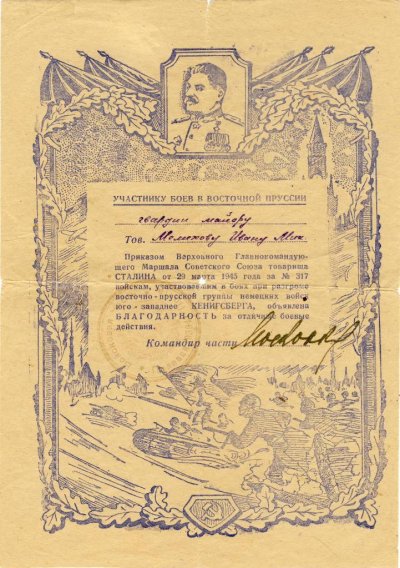 УЧАСТНИКУ БОЕВ В ВОСТОЧНОЙ ПРУССИИ
гвардии майору
Тов. Ивану
Приказом Верховного Главнокомандую-
щего Маршала Советского Союза товарища
СТАЛИНА от 29 марта 1945 года за № 317
войскам, участвовавшим в боях при разгроме
восточно-прусской группы немецких войск
юго-западнее КЕНИГСБЕРГА, объявлена
БЛАГОДАРНОСТЬ за отличные боевые
действия.
Командир части